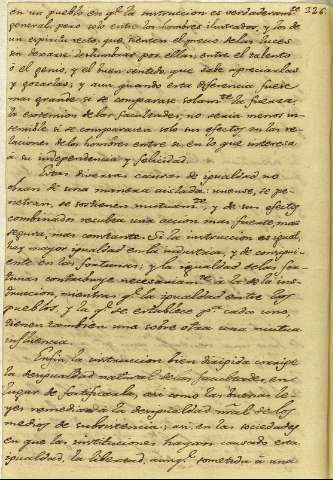 en un pueblo en q.e la instruccion es verdaderam.te 326
general, pero solo entre los hombres ilustrados y los de
un espiritu recto, que sienten el precio de las luces
sin dexarse deslumbrar por ellas, entre el talento
ó el genio, y el buen sentido que sabe apreciarlas
y gozarlas; y aun quando esta diferencia fuese
mas grande si se comparase solam.te la fuerza,
la extension de las facultades, no seria menos in-
sensible si se comparasen solo sus efectos en las re-
laciones de los hombres entre si, en lo que interesa
á su independencia y felicidad.
Estas diversas causas de igualdad no
obran de una manera aislada: unense, se pe-
netran, se sostienen mutuam.te, y de sus efectos
combinados resulta una accion mas fuerte, mas
segura, mas constante. Si la instruccion es igual,
hay mayor igualdad en la industria, y de consigui-
ente en las fortunas; y la igualdad de las for-
tunas contribuye necesariam.te á la de la ins-
truccion, mientras q.e la igualdad entre los
pueblos, y la q.e se establece p.a cada uno,
tienen tambien una sobre otra una mutua
influencia.
Enfin, la instruccion bien dirigida corrige
la desigualdad natural de las facultades, en
lugar de fortificarla, asi como las buenas le-
yes remedian á la desigualdad n.ral de los
medios de subsistencia; asi, en las sociedades
en que las instituciones hayan causado esta
igualdad, la libertad, aunq.e sometida á una